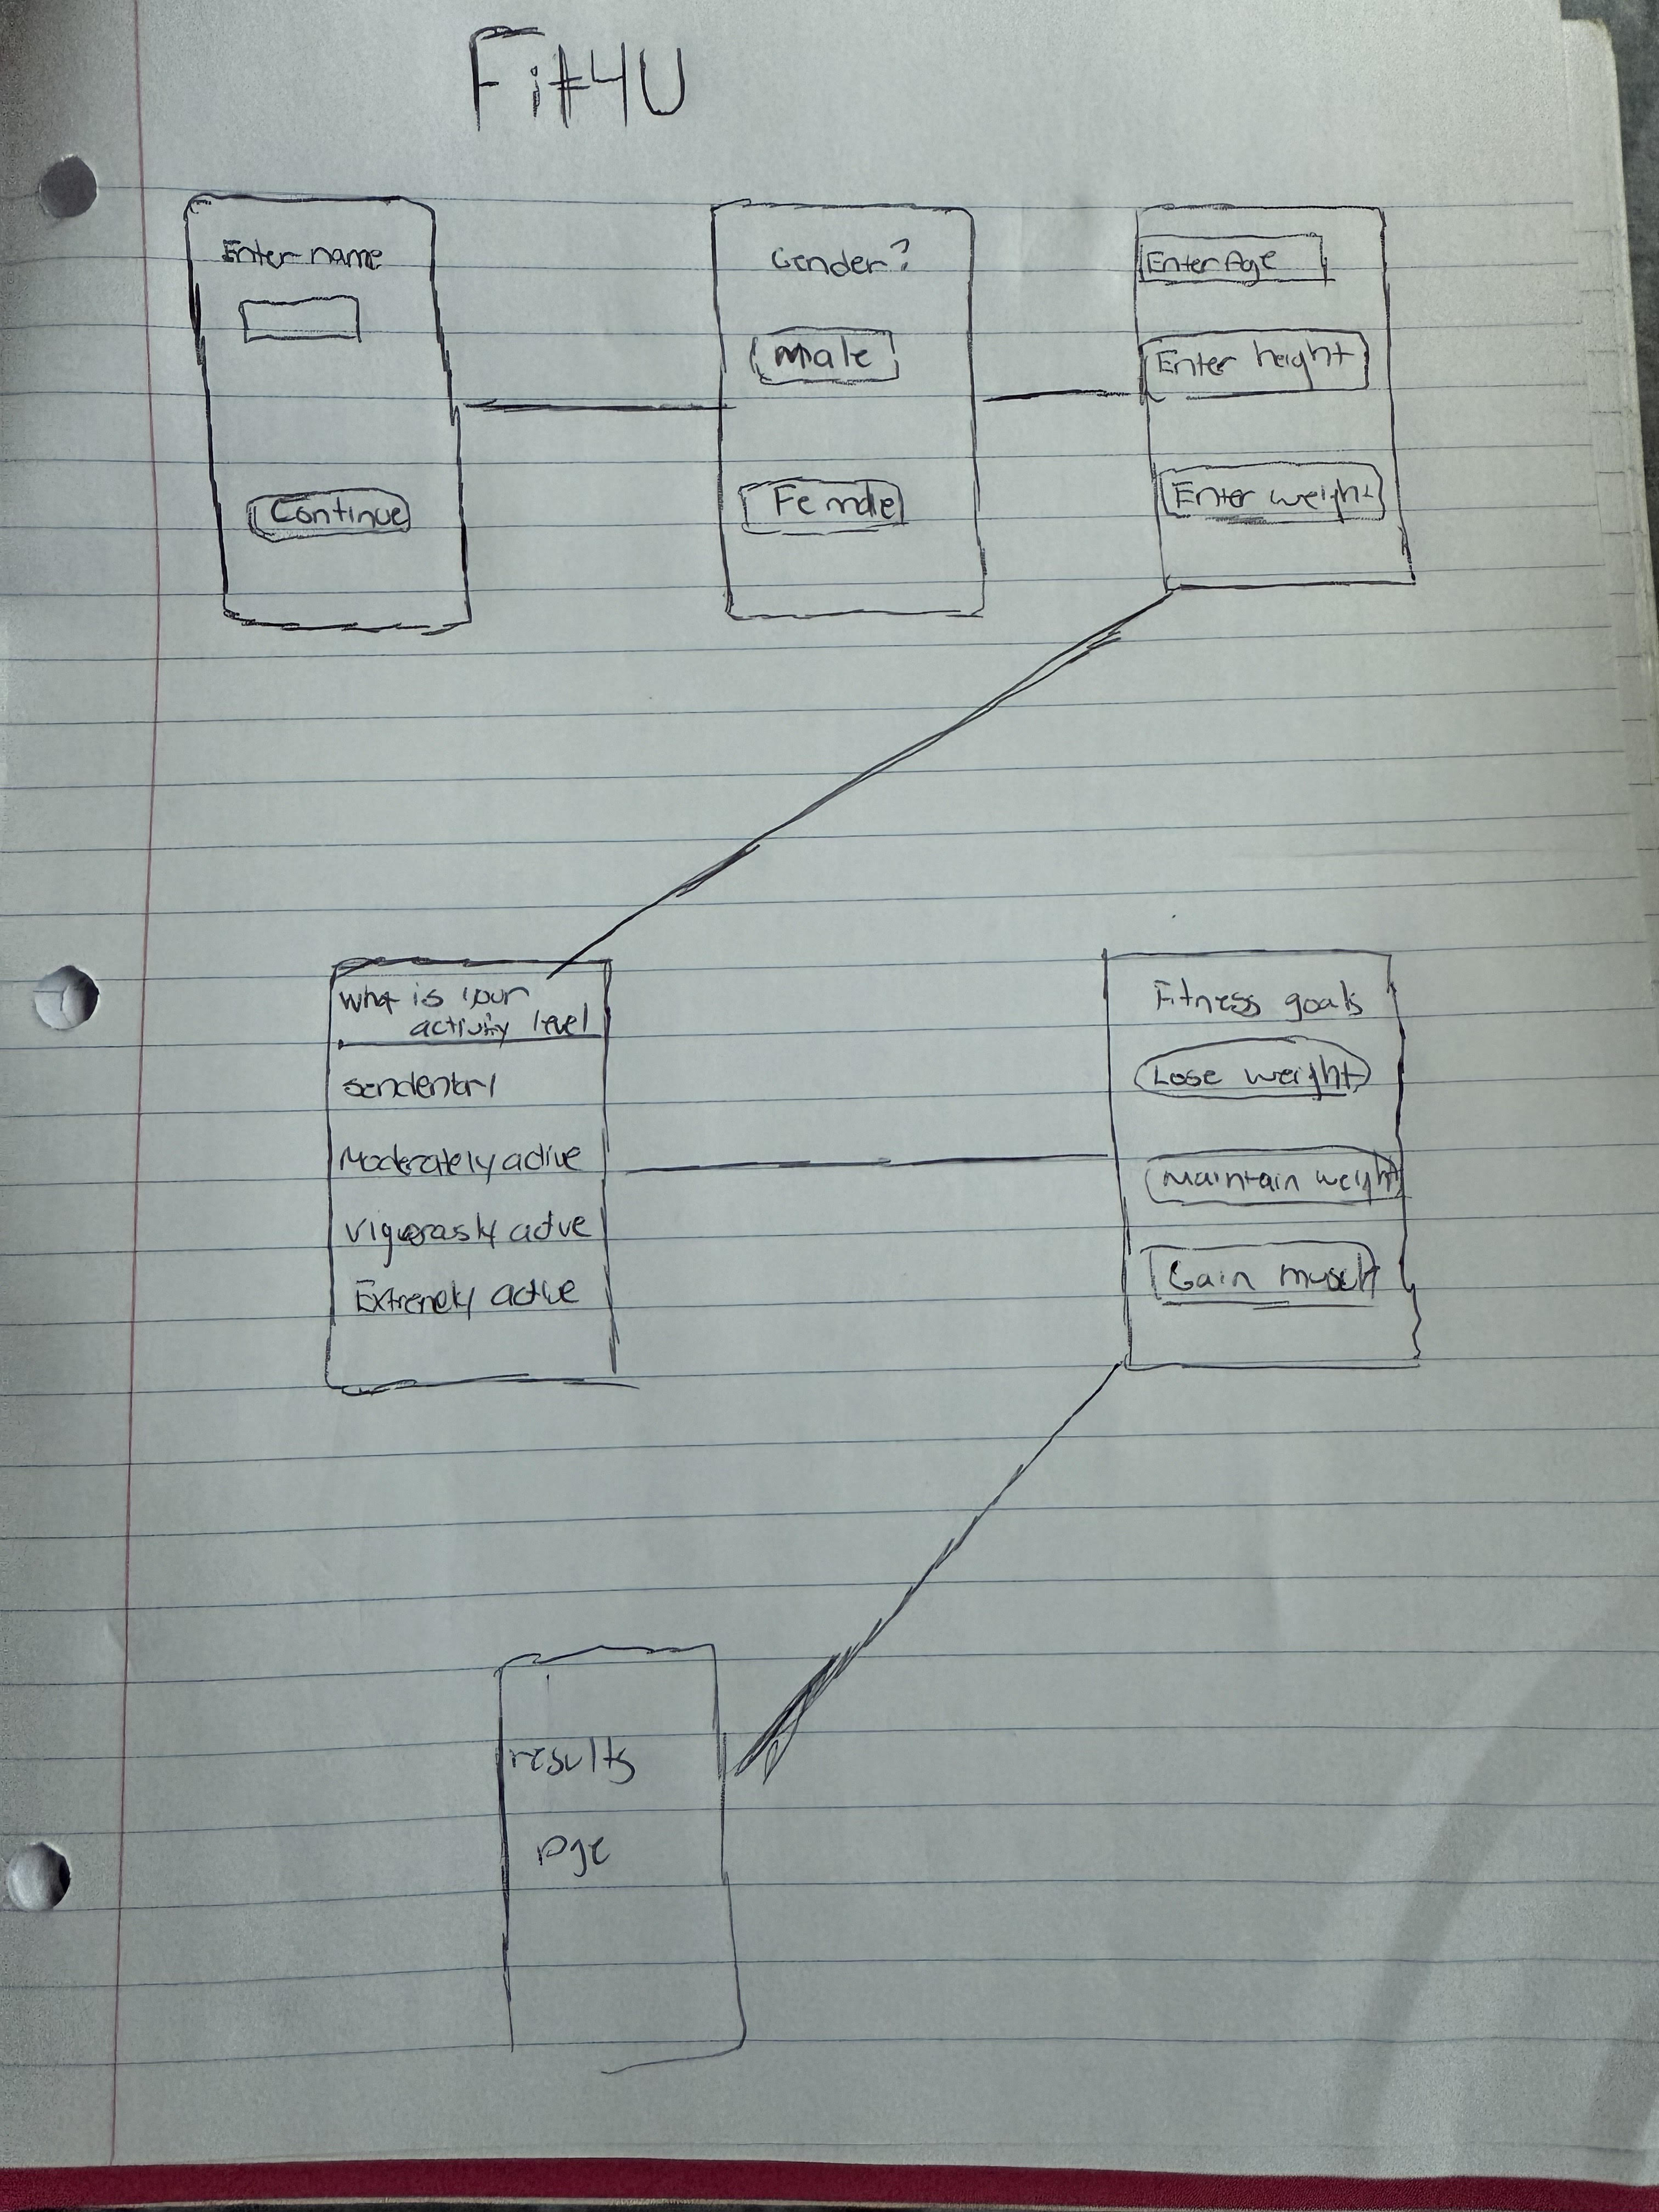 Fit4U
Enter name
Continue
Gender?
Male
Female
Enter Age
Enter height
Enter weight
What is your
activity level
sendentary
Moderately active
Vigorasly active
Extremely active
Fitness goals
Lose weight
Maintain weight
Gain muscle
results
pge